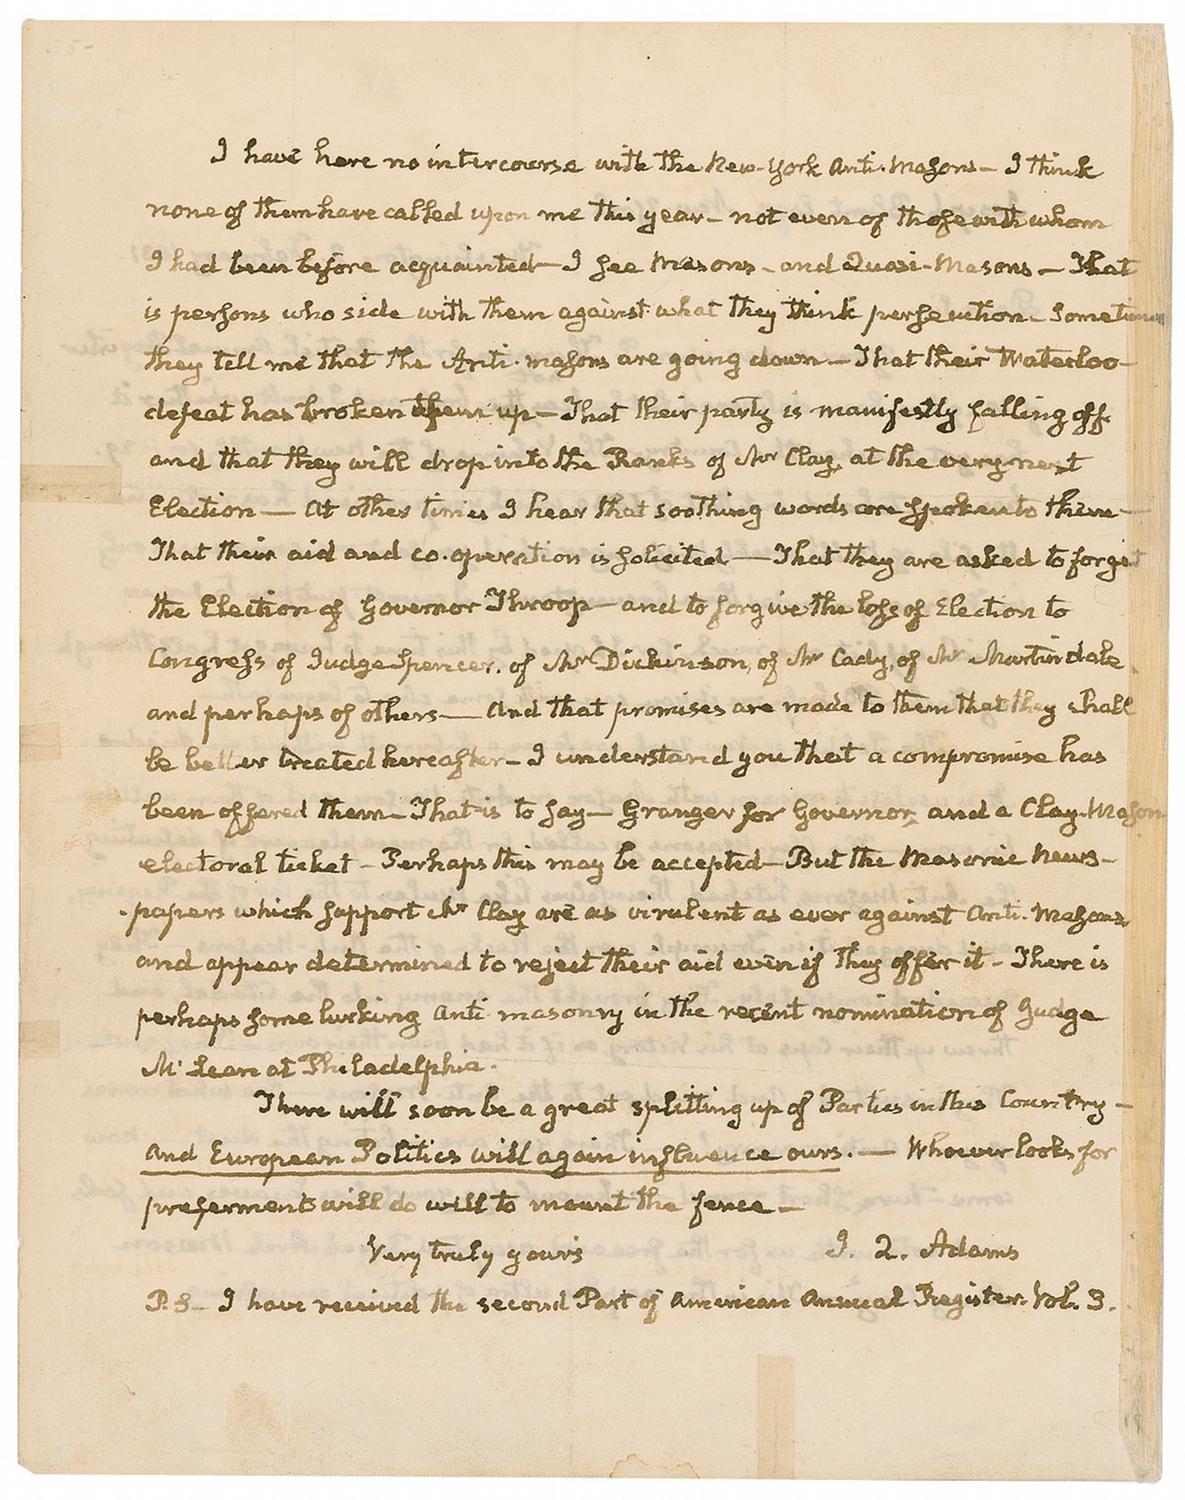 I have here no intercourse with the New-York Anti-Masons — I think
none of them have called upon me this year — not even of those with whom
I had been before acquainted — I see Masons — and Quasi-Masons — That
is persons who side with them against what they think persecution — Sometimes
they tell me that the Anti-masons are going down — That their Waterloo
defeat has broken them up — That their party is manifestly falling off
and that they will drop into the Ranks of Mr Clay, at the very next
Election — At other times I hear that soothing words are spoken to them —
That their aid and co-operation is solicited — That they are asked to forget
the Election of Governor Throop — and to forgive the loss of Election to
Congress of Judge Spencer, of Mr Dickinson, of Mr Cady, of Mr Martindale
and perhaps of others — And that promises are made to them that they shall
be better treated hereafter — I understand you that a compromise has
been offered them — That is to say — Granger for Governor, and a Clay-Mason
electoral ticket — Perhaps this may be accepted — But the Masonic News-
-papers which support Mr Clay are as virulent as ever against Anti-Masons
and appear determined to reject their aid even if they offer it — There is
perhaps some lurking Anti-masonry in the recent nomination of Judge
McLean at Philadelphia.
There will soon be a great splitting up of Parties in this Country —
and European Politics will again influence ours. — Whoever looks for
preferment will do well to mount the fence —
Very truly yours J. Q. Adams
P.S — I have received the second Part of American Annual Register. Vol. 3.